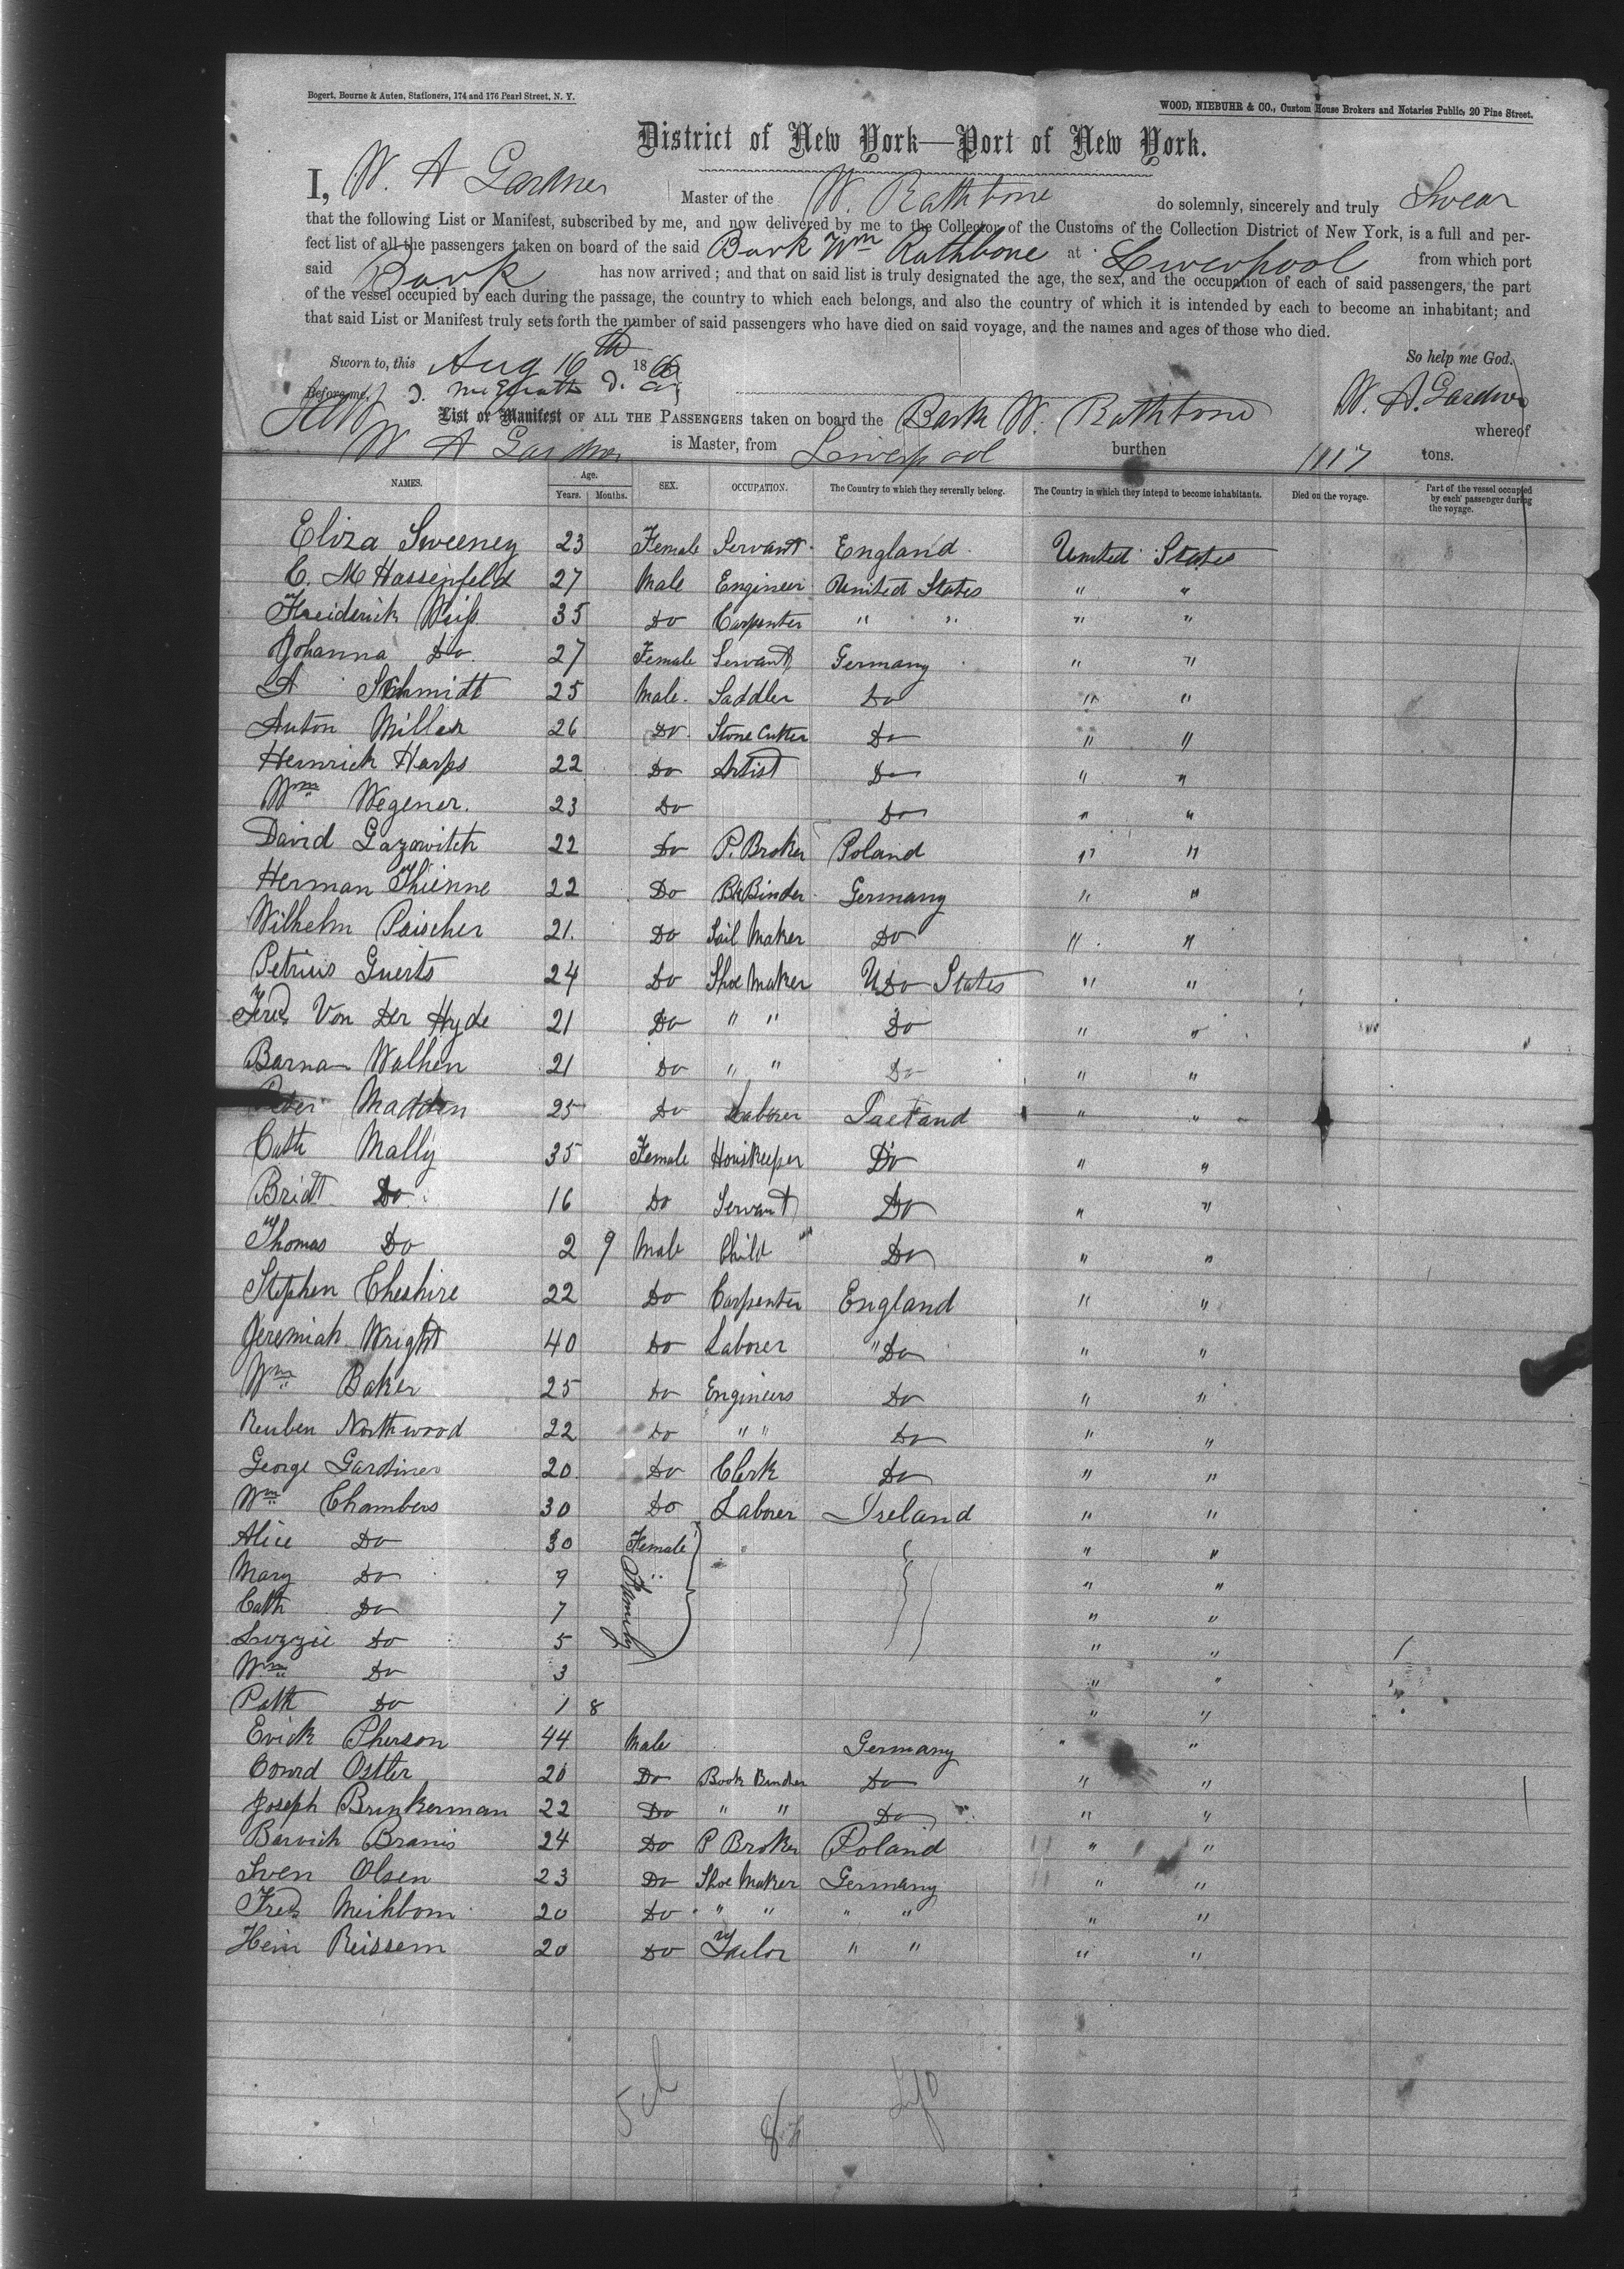 Bogert, Bourne & Auten, Stationers, 174 and 176 Pearl Street, N. Y.
WOOD, NIEBUHR & CO., Custom House Brokers and Notaries Public, 20 Pine Street.
District of New York—Port of New York.
I, W. A Gardner Master of the W. Rathbone do solemnly, sincerely and truly Swear
that the following List or Manifest, subscribed by me, and now delivered by me to the Collector of the Customs of the Collection District of New York, is a full and per-
fect list of all the passengers taken on board of the said Bark Wm Rathbone at Liverpool from which port
said Bark has now arrived; and that on said list is truly designated the age, the sex, and the occupation of each of said passengers, the part
of the vessel occupied by each during the passage, the country to which each belongs, and also the country of which it is intended by each to become an inhabitant; and
that said List or Manifest truly sets forth the number of said passengers who have died on said voyage, and the names and ages of those who died.
Sworn to, this Aug 16th 1866 So help me God.
Before me, W. A. Gardner
List or Manifest OF ALL THE PASSENGERS taken on board the Bark W. Rathbone whereof
W A Gardner is Master, from Liverpool burthen 1117 tons.
NAMES. Age. Years. Months. SEX. OCCUPATION. The Country to which they severally belong. The Country in which they intend to become inhabitants. Died on the voyage. Part of the vessel occupied by each passenger during the voyage.
Eliza Sweeney 23 Female Servant England United States
C. M Hassenfeld 27 Male Engineer United States " "
Freiderick 35 Do Carpenter " " " "
Johanna Do. 27 Female Servant Germany " "
A Schmidt 25 Male. Saddler Do " "
Anton Miller 26 Do. Stone Cutter Do " "
Heinrich Harps 22 Do Artist Do " "
Wm Wegener. 23 Do Do " "
David Lazowitch 22 Do P. Broker Poland " "
Herman Thienne 22 Do Bk Binder Germany " "
Wilhelm Paischer 21. Do Sail Maker Do " "
Petrius Guerts 24 Do Shoe Maker U States " "
Fred Von Der Hyde 21 Do " " Do " "
Barna Walhen 21 Do " " Do " "
Peter Madden 25 Do Laborer " "
Cath Mally 35 Female Houskeeper Do " "
Bridt Do. 16 Do Servant Do " "
Thomas Do 2 9 Male Child Do " "
Stephen Cheshire 22 Do Carpenter England " "
Jeremiah Wright 40 Do Laborer "Do " "
Wm Baker 25 Do Engineers Do " "
Reuben Northwood 22 Do " " Do " "
George Gardiner 20. Do Clerk Do " "
Wm Chambers 30 Do Laborer Ireland " "
Alice Do 30 Female " " "
Mary Do 9 " " "
Cath Do 7 Family " "
Lizzie Do 5 " "
Wm Do 3 " "
Patk Do 1 8 " "
Erick Pherson 44 Male Germany " "
Conrd Ostler 20 Do Book Binder Do " "
Joseph Brinkerman 22 Do " " Do " "
Barvich Branis 24 Do P Broker Poland " "
Sven Olsen 23 Do Shoe Maker Germany " "
Fred Meihbom 20 Do " " " " " "
Hein Reissem 20 Do Tailor " " " "